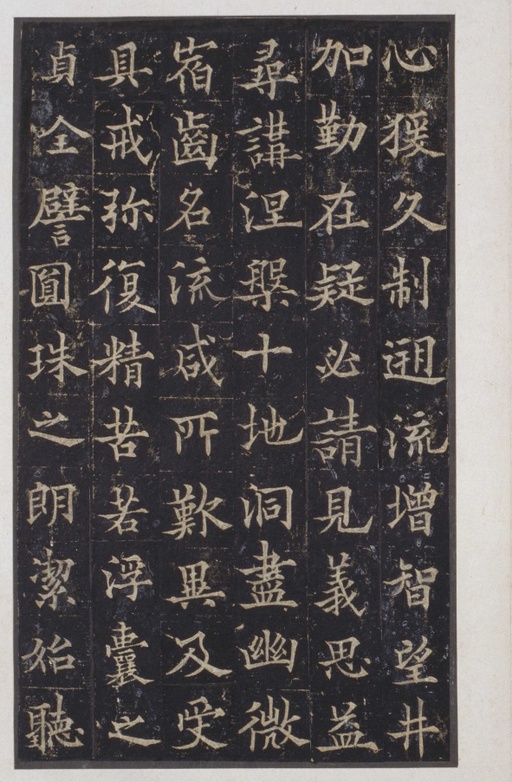 心猨久制迴流增智望井
加勤在疑必請見義思益
尋講涅槃十地洞盡幽微
宿齒名流咸所歎異及受
具戒弥復精苦若浮囊之
貞全譬圓珠之朗潔始聽